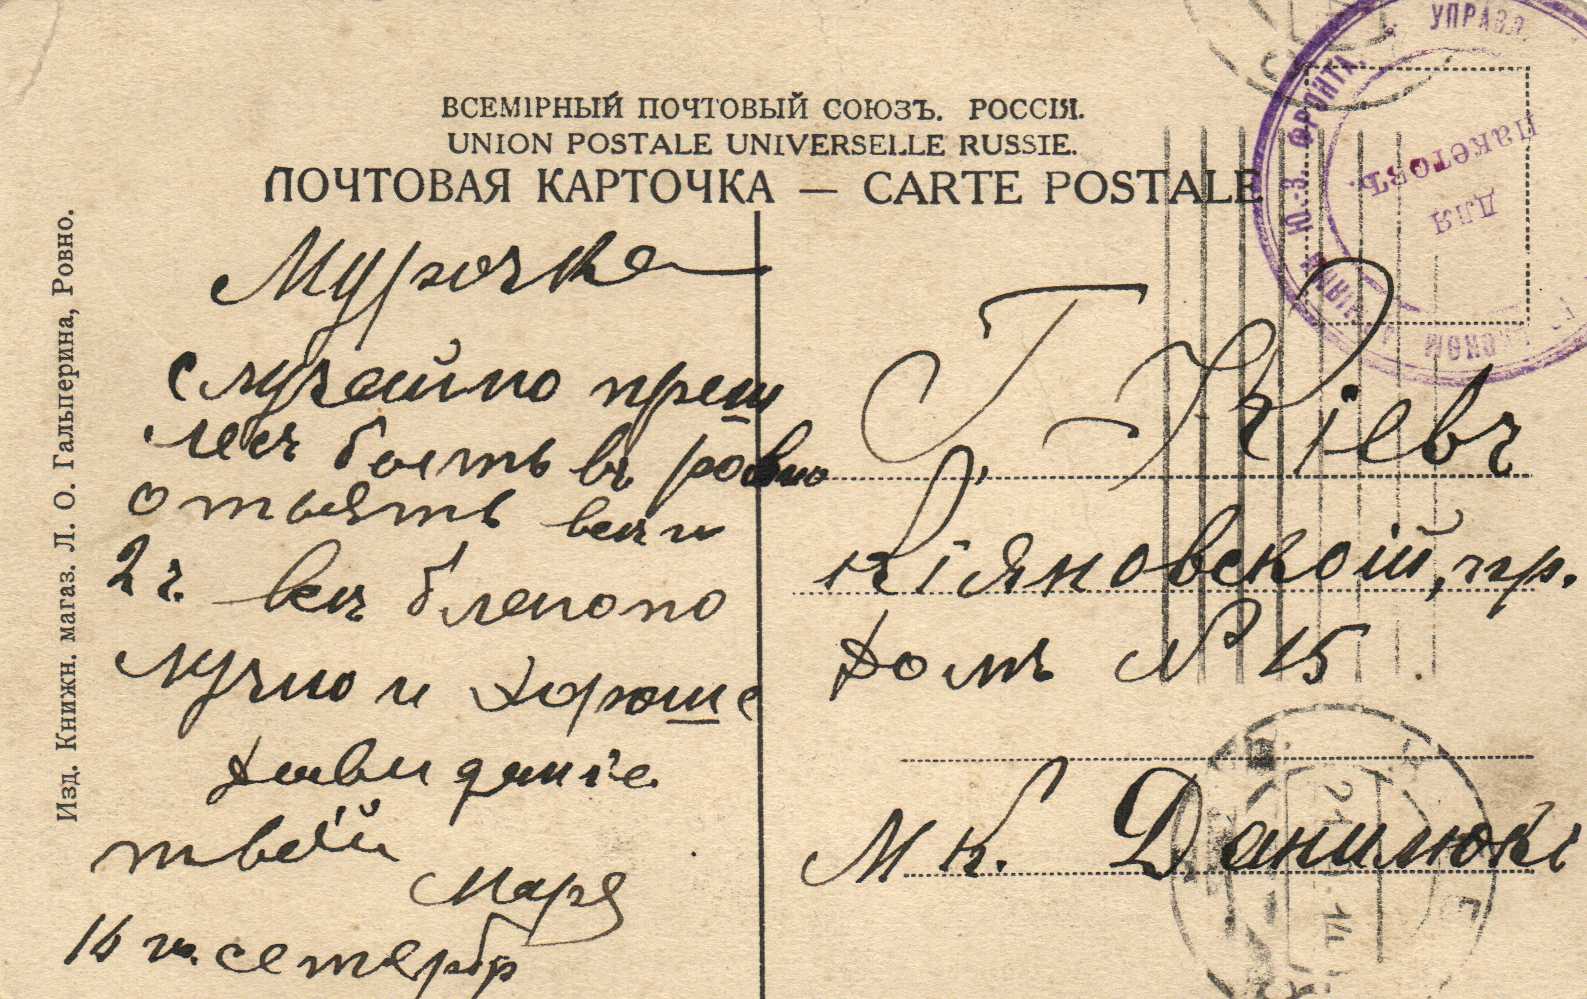 ВСЕМІРНЫЙ ПОЧТОВЫЙ СОЮЗЪ. РОССІЯ.
UNION POSTALE UNIVERSELLE RUSSIE.
ПОЧТОВАЯ КАРТОЧКА — CARTE POSTALE
Изд. Книжн. магаз. Л. О. Гальперина, Ровно.
Мурочка
случайно преш
лесь бысть въ ровно
2 ч. все
лучно и хороше
Давиданіе
твой
Маря
16 го сетербр
Г. Кіевъ
Кіяновскій, пр.
домъ № 15
М К. Данилюкъ
УПРАВЛ.
Ю.-З. ФРОНТА.
для
пакетовъ.